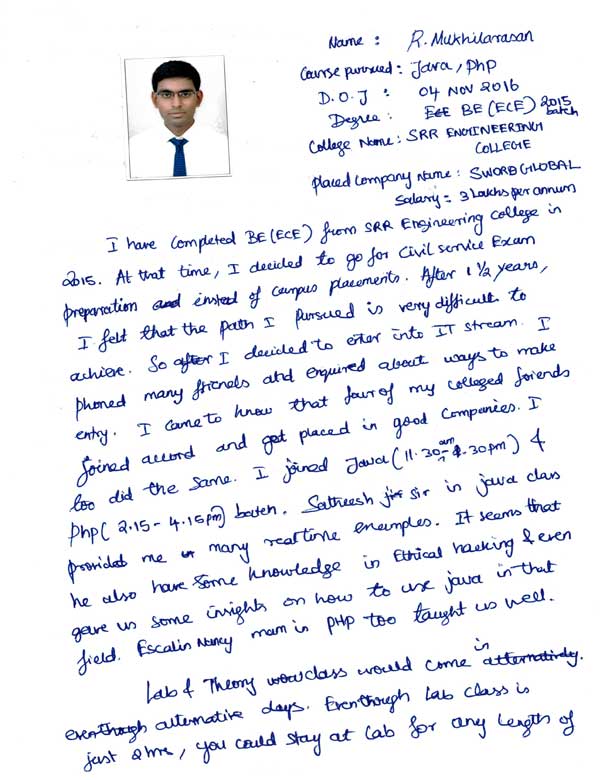 Name : R. Mukhilarasan
Course pursued : Java, Php
D.O.J : 04 NOV 2016
Degree : BE (ECE) 2015 batch
College Name : SRR ENGINEERING
COLLEGE
Placed Company Name : SWORD GLOBAL
Salary = 3 Lakhs per annum
I have completed BE (ECE) from SRR Engineering college in
2015. At that time, I decided to go for Civil service Exam
preparation instead of campus placements. After 1 1/2 years,
I felt that the path I pursued is very difficult to
achieve. So I decided to enter into IT stream. I
phoned many friends and enquired about ways to make
entry. I came to know that four of my colleged friends
joined accord and got placed in good companies. I
too did the same. I joined Java (11.30am - 1.30pm) &
Php (2.15 - 4.15pm) batch. Satheesh sir in java class
provided me many realtime examples. It seems that
he also have some knowledge in Ethical hacking & even
gave us some insights on how to use java in that
field. Escalin Nancy mam in PHP too taught us well.
Lab & Theory class would come in
alternative days. Eventhough Lab class is
just 2hrs, you could stay at Lab for any length of